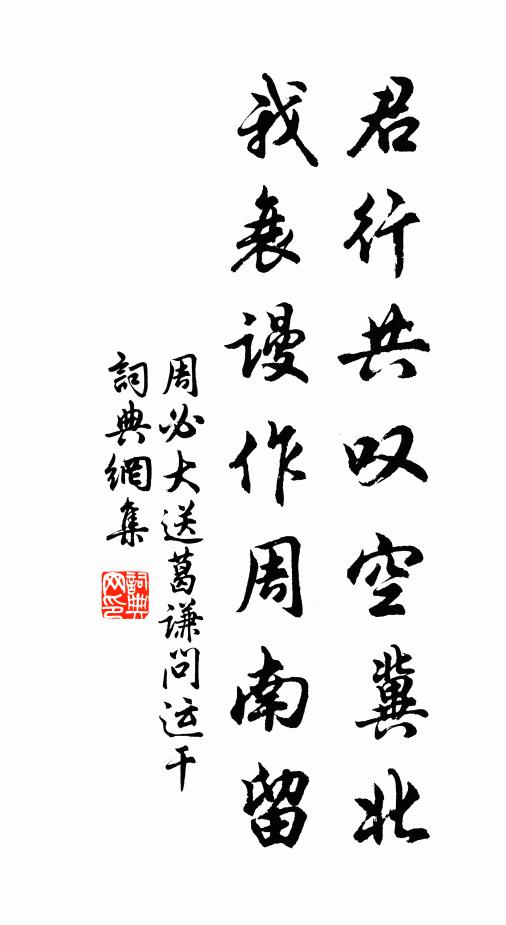 君行共叹空冀北
我衰谩作周南留
周必大送葛谦问运干
詞典網集
詞典网印